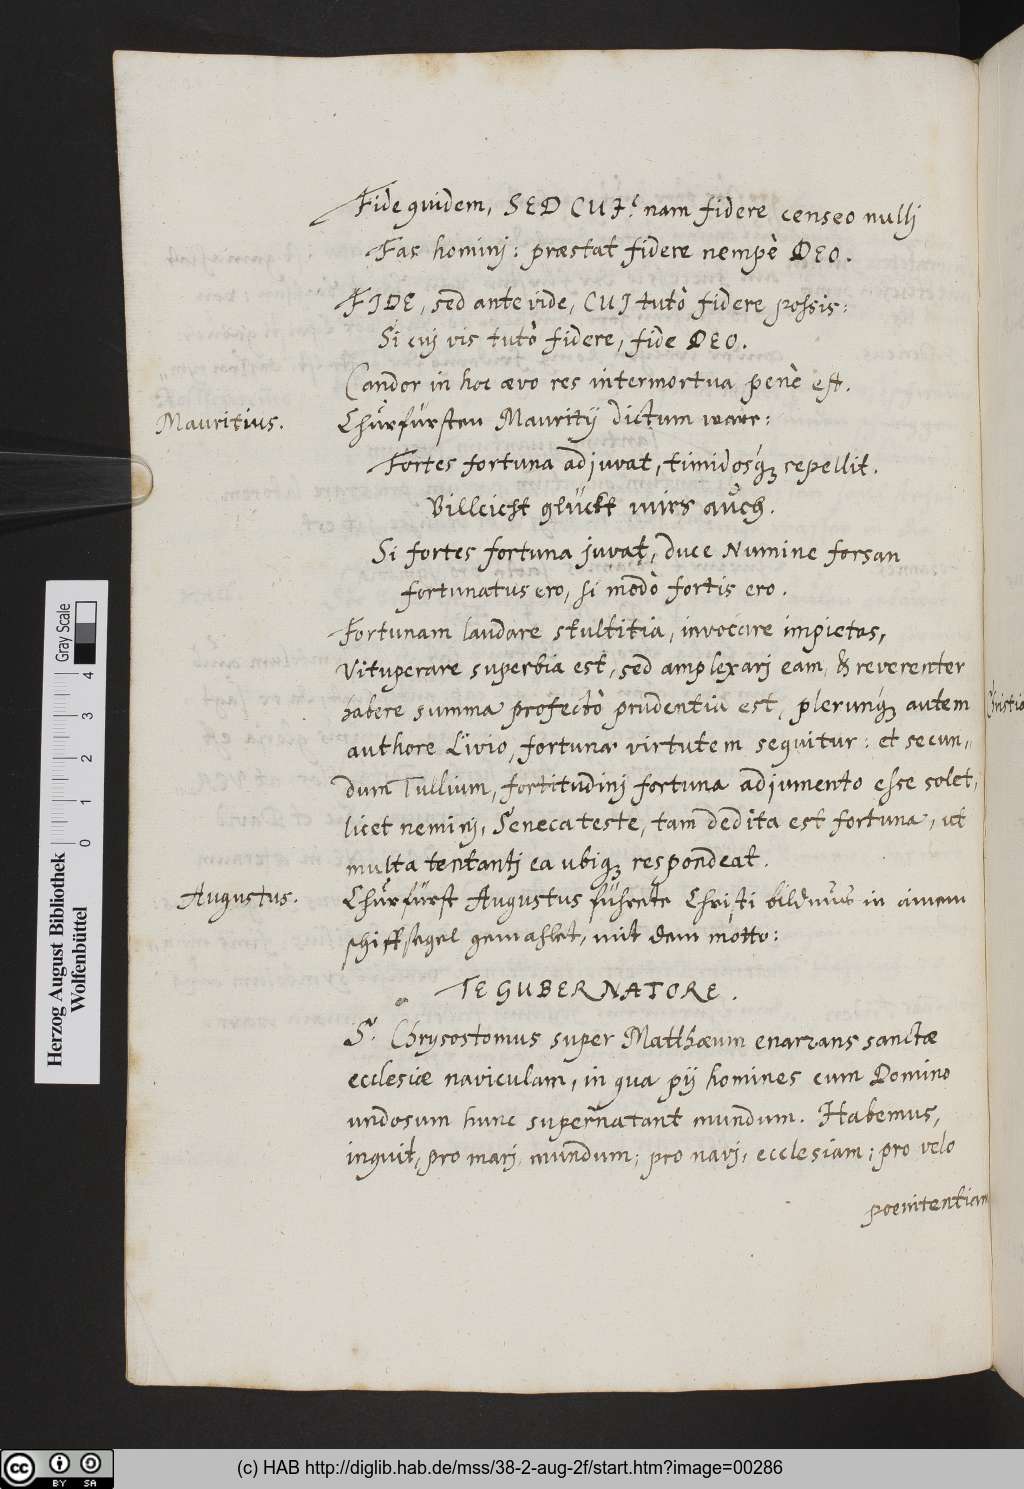 Fide quidem, SED CUI? nam fidere censeo nullj
Fas hominj: præstat fidere nempè DEO.
FIDE, sed ante vide, CUI tutò fidere possis:
Si cuj vis tutò fidere, fide DEO.
Candor in hoc ævo res intermortua penè est.
Mauritius.
Chürfürsten Mauritij dictum ware:
Fortes fortuna adjuvat, timidosq́ꝫ sepellit.
Villeicht glückt mirs auch.
Si fortes fortuna juvat, duce Numine forsan
fortunatus ero, si modò fortis ero.
Fortunam laudare stultitia, invocare impietas,
Vituperare superbia est, sed amplexarj eam, & reverenter
habere summa profectò prudentia est, plerunq́ꝫ autem
authore Livio, fortuna virtutem sequitur: et secun„
dum Tullium, fortitudinj fortuna adjumento esse solet,
licet neminj, Seneca teste, tam dedita est fortuna, ut
multa tentantj ea ubiqꝫ respondeat.
Augustus.
Chürfürst Augustus führete Christi bildnus in ainem
schiffsegel gemahlet, mit dem motto:
TE GUBERNATORE.
S. Chrysostomus super Matthæum enarrans sanctæ
ecclesiæ naviculam, in qua pij homines cum Domino
undosum hunc supernatant mundum. Habemus,
inquit, pro marj mundum; pro navj, ecclesiam; pro velo
poenitentiam
Herzog August Bibliothek
Wolfenbüttel
0 1 2 3 4
Gray Scale
cc BY SA
(c) HAB http://diglib.hab.de/mss/38-2-aug-2f/start.htm?image=00286